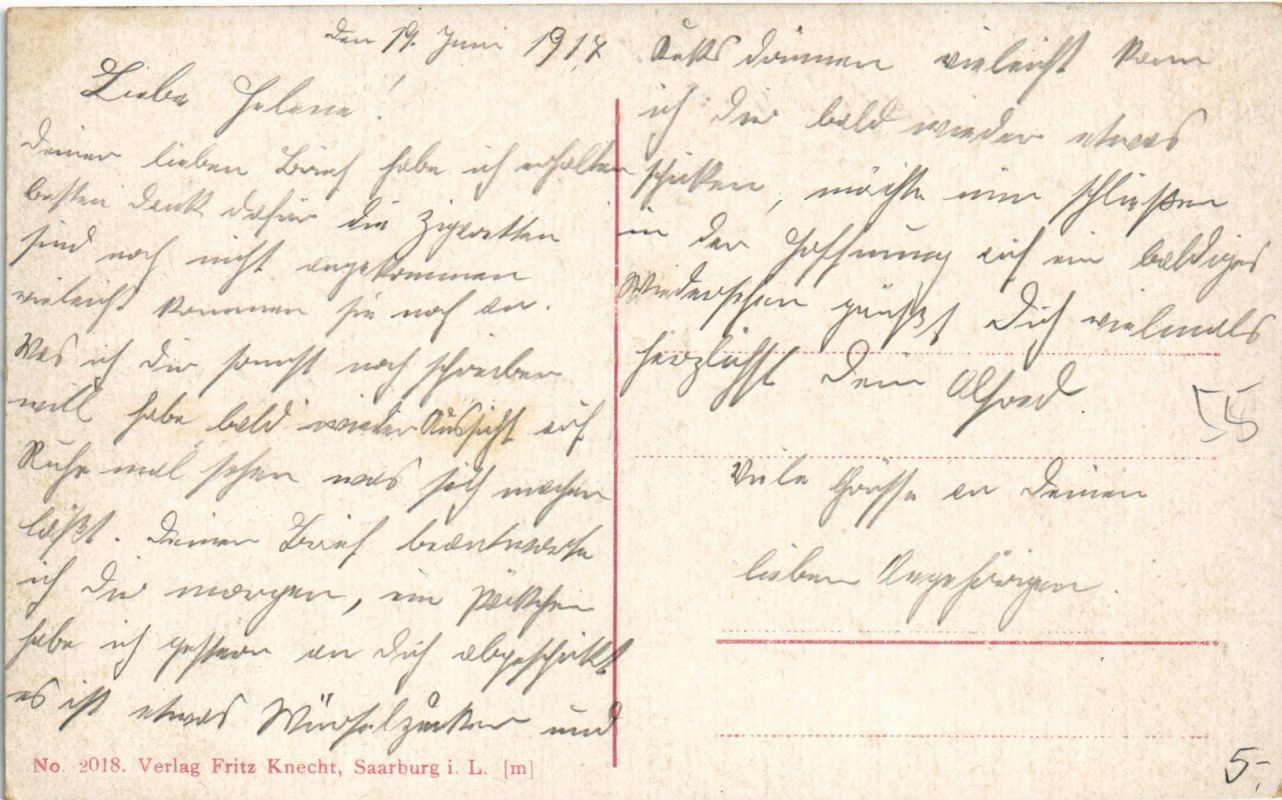 den 19. Juni 1917
Liebe Helene!
Deinen lieben Brief habe ich erhalten
besten Dank dafür die Zigaretten
sind noch nicht angekommen
vieleicht kommen sie noch an.
Was ich dir sonst noch schreiben
will habe bald wieder Aussicht auf
Ruhe mal sehen was sich machen
läßt. Deinen Brief beantworte
ich dir morgen, ein Päckchen
habe ich gestern an Dich abgeschickt
es ist etwas Würfelzucker und
vieleicht kann
ich dir bald wieder etwas
schicken, möchte nun schließen
in der Hoffnung auf ein baldiges
Wiedersehen grüßt Dich vielmals
herzlichst Dein Alfred.
Viele Grüsse an Deinen
lieben Angehörigen.
55
5.-
No. 2018. Verlag Fritz Knecht, Saarburg i. L. [m]